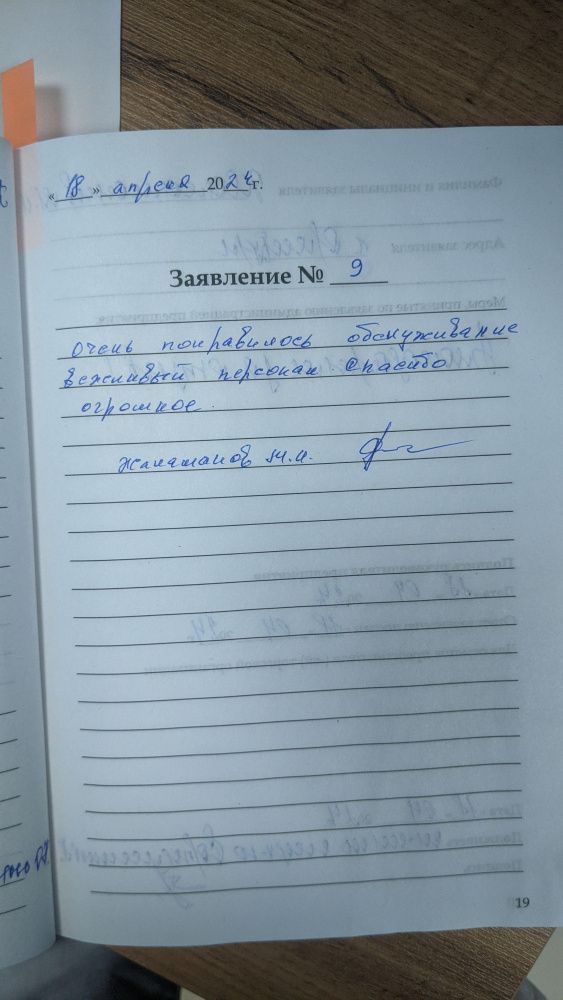 «18» апреля 2024 г.
Заявление № 9
очень понравилось обслуживание
вежливый персонал спасибо
огромное.
М.И.
19